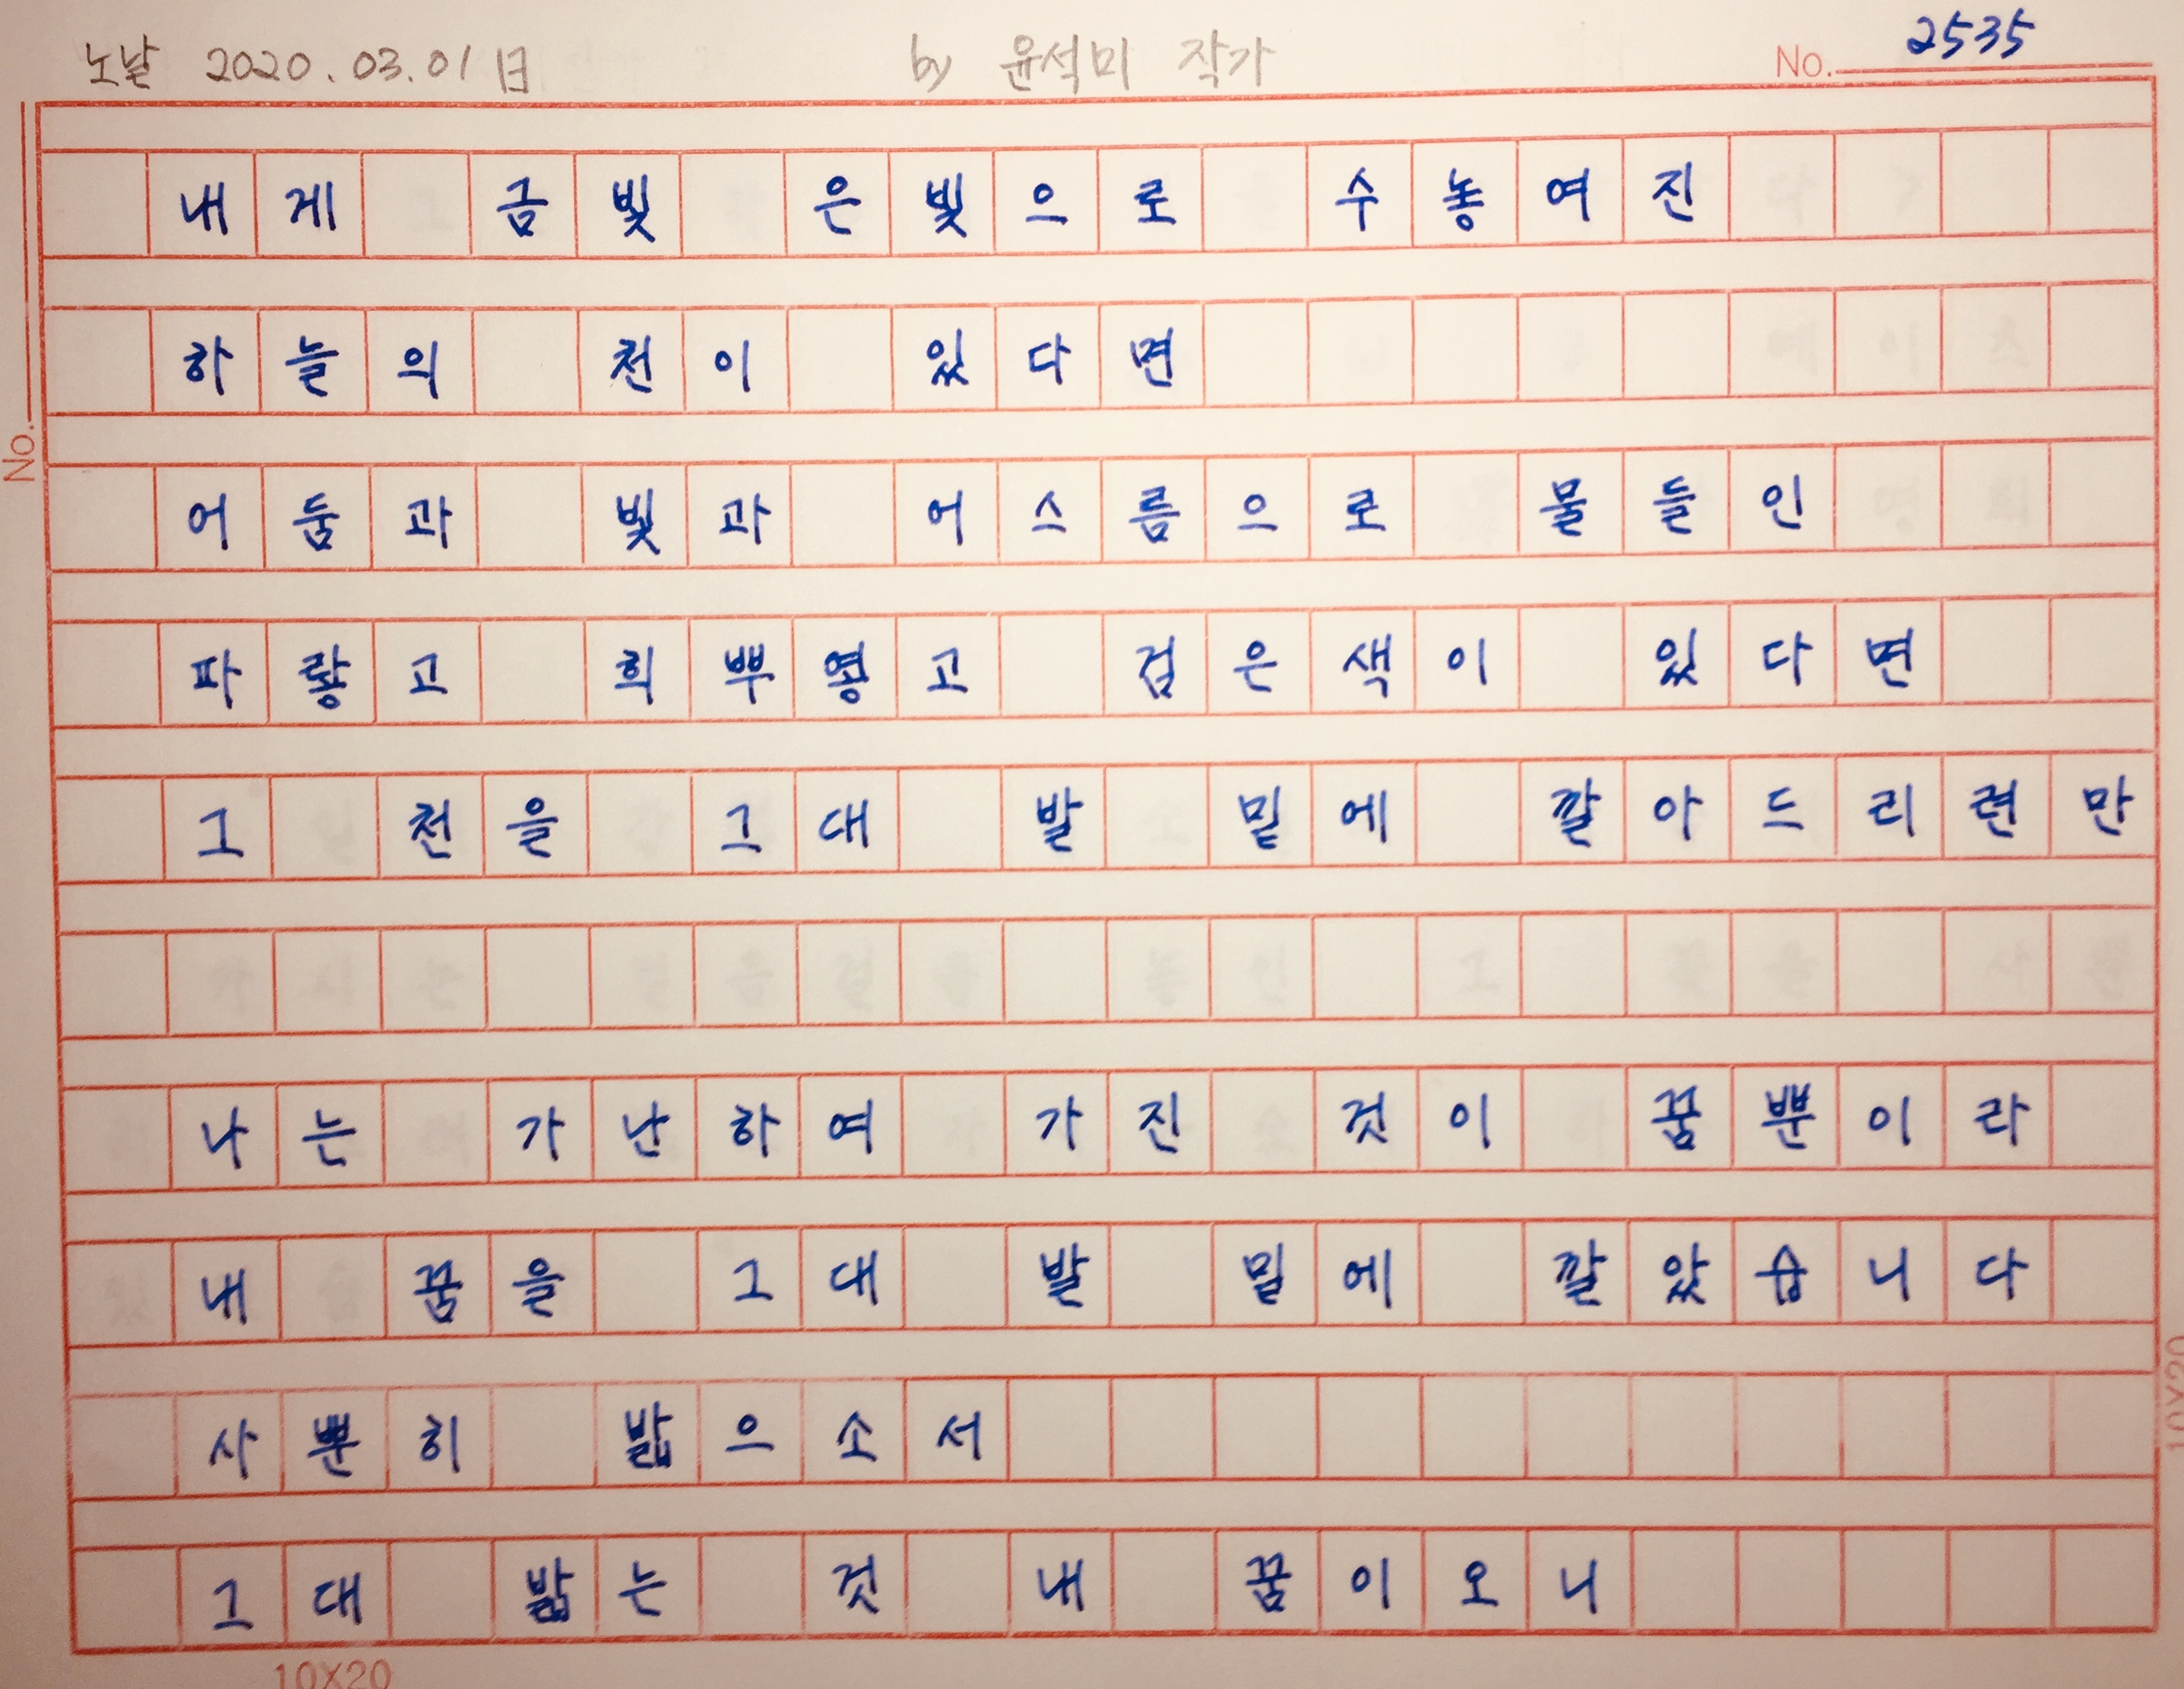 노날 2020.03.01日 by 윤석미 작가 No. 2535
내게 금빛 은빛으로 수놓여진
하늘의 천이 있다면
No.
어둠과 빛과 어스름으로 물들인
파랗고 희뿌옇고 검은색이 있다면
그 천을 그대 발 밑에 깔아드리련만
나는 가난하여 가진 것이 꿈뿐이라
내 꿈을 그대 발 밑에 깔았습니다
사뿐히 밟으소서
10X20
그대 밟는 것 내 꿈이오니
10X20